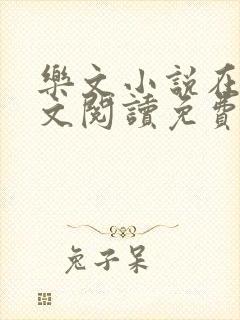 樂文小說在
文閱讀免費
兔子呆